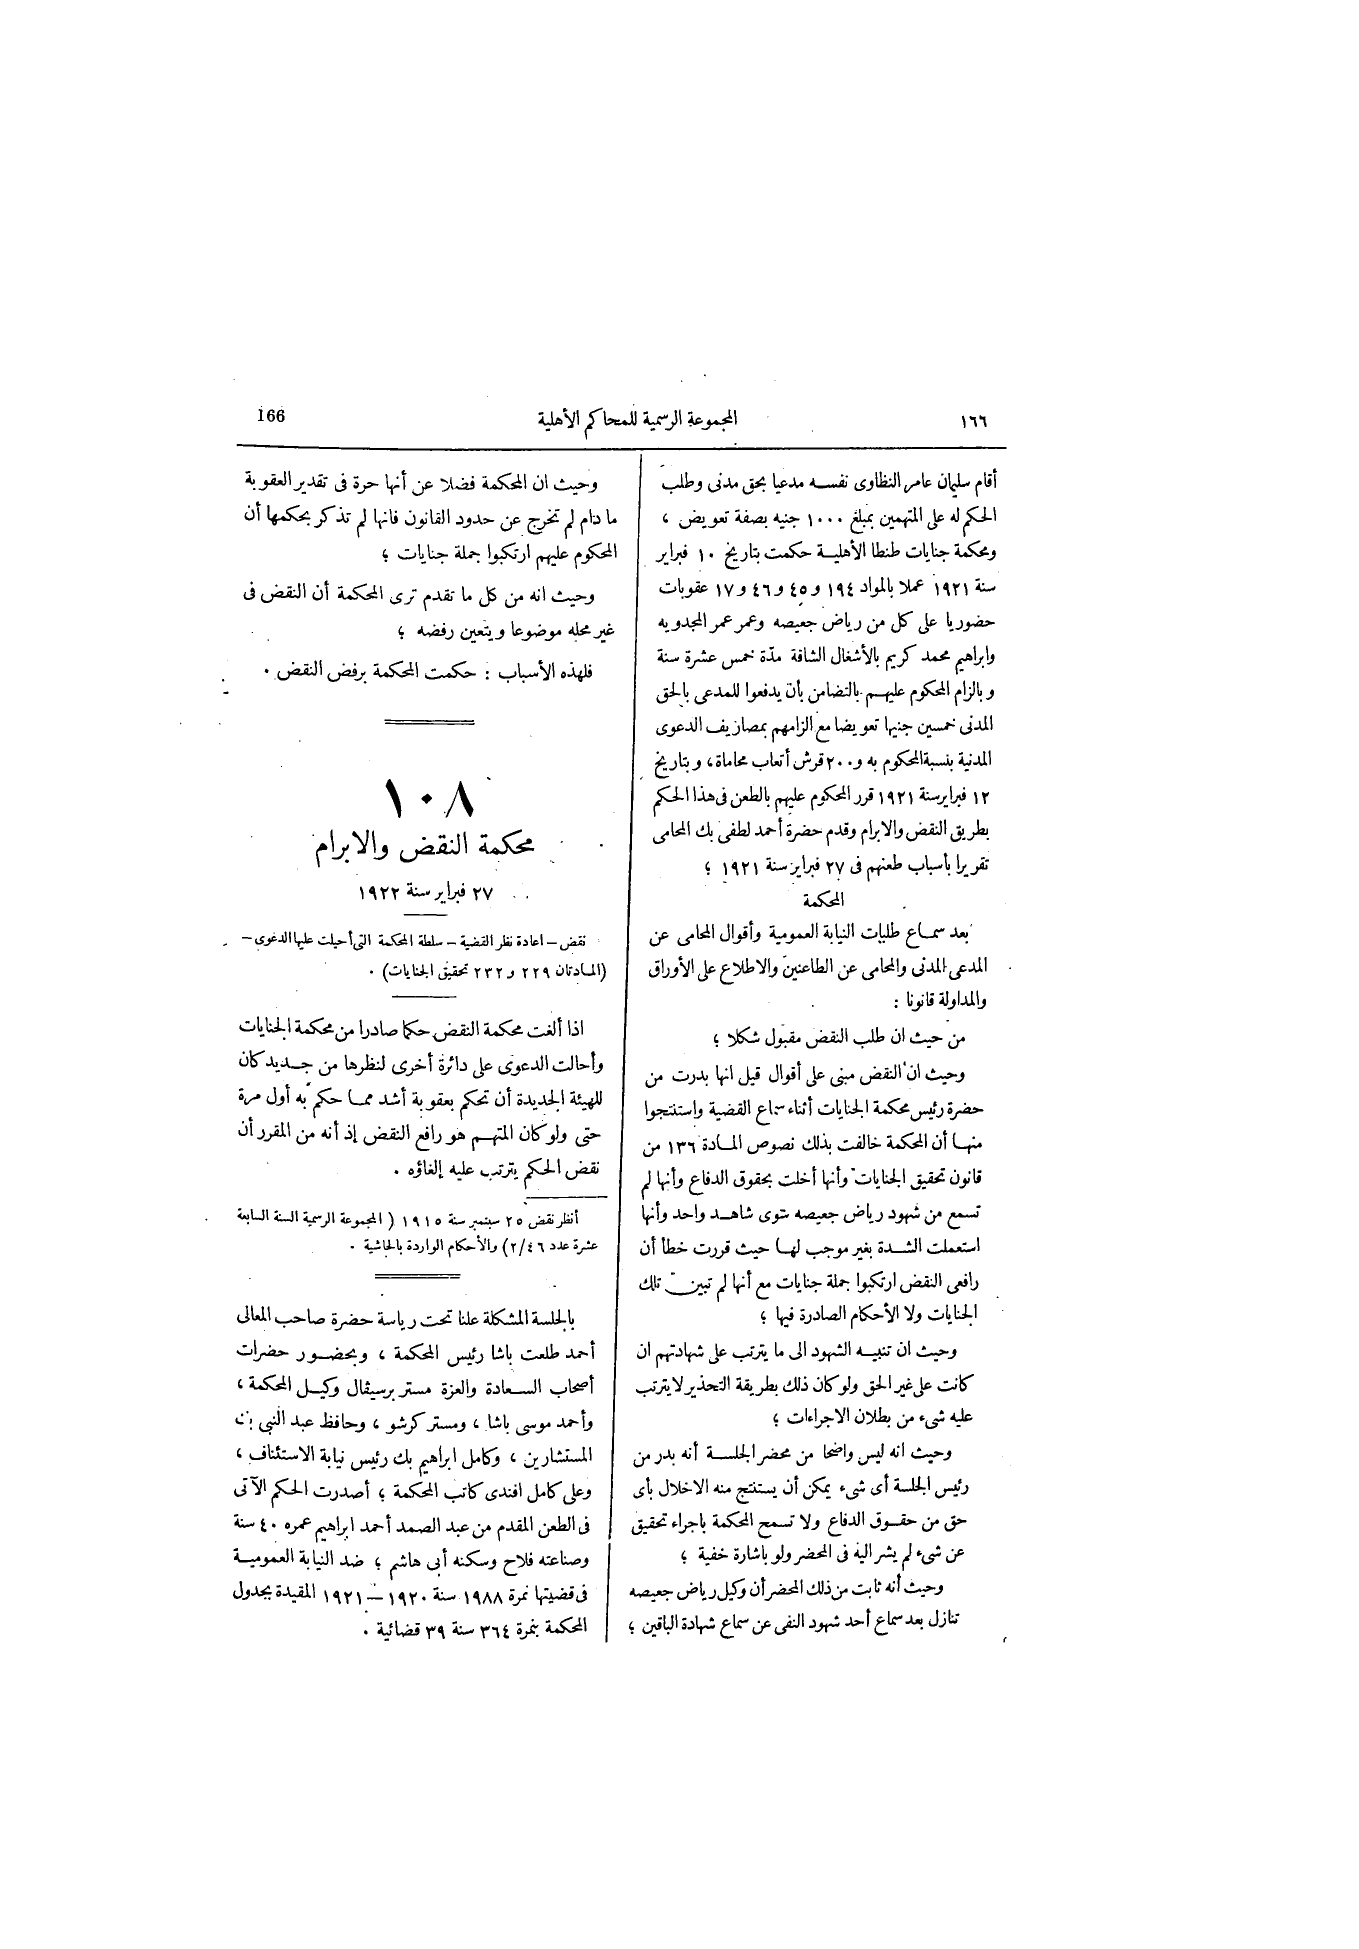 ١٦٦
المجموعة الرسمية للمحاكم الأهلية
166
أقام سليمان عامر النظاوى نفسه مدعيا بحق مدنى وطلب
الحكم له على المتهمين بمبلغ ١٠٠٠ جنيه بصفة تعويض ،
ومحكمة جنايات طنطا الأهلية حكمت بتاريخ ١٠ فبراير
سنة ١٩٢١ عملا بالمواد ١٩٤ و٤٥ و٤٦ و١٧ عقوبات
حضوريا على كل من رياض جعيصه وعمر عمر المجدويه
وابراهيم محمد كريم بالأشغال الشاقة مدّة خمس عشرة سنة
وبالزام المحكوم عليهم بالتضامن بأن يدفعوا للمدعى بالحق
المدنى خمسين جنيها تعويضا مع الزامهم بمصاريف الدعوى
المدنية بنسبة المحكوم به و٢٠٠ قرش أتعاب محاماة ، وبتاريخ
١٢ فبراير سنة ١٩٢١ قرر المحكوم عليهم بالطعن فى هذا الحكم
بطريق النقض والابرام وقدم حضرة أحمد لطفى بك المحامى
تقريرا بأسباب طعنهم فى ٢٧ فبراير سنة ١٩٢١ ؛
المحكمة
بعد سماع طلبات النيابة العمومية وأقوال المحامى عن
المدعى المدنى والمحامى عن الطاعنين والاطلاع على الأوراق
والمداولة قانونا :
من حيث ان طلب النقض مقبول شكلا ؛
وحيث ان النقض مبنى على أقوال قيل انها بدرت من
حضرة رئيس محكمة الجنايات أثناء سماع القضية واستنتجوا
منها أن المحكمة خالفت بذلك نصوص المادة ١٣٦ من
قانون تحقيق الجنايات وأنها أخلت بحقوق الدفاع وأنها لم
تسمع من شهود رياض جعيصه سوى شاهد واحد وأنها
استعملت الشدة بغير موجب لها حيث قررت خطأ أن
رافعى النقض ارتكبوا جملة جنايات مع أنها لم تبين تلك
الجنايات ولا الأحكام الصادرة فيها ؛
وحيث ان تنبيه الشهود الى ما يترتب على شهادتهم ان
كانت على غير الحق ولو كان ذلك بطريقة التحذير لا يترتب
عليه شىء من بطلان الاجراءات ؛
وحيث انه ليس واضحا من محضر الجلسة أنه بدر من
رئيس الجلسة أى شىء يمكن أن يستنتج منه الاخلال بأى
حق من حقوق الدفاع ولا تسمح المحكمة باجراء تحقيق
عن شىء لم يشر اليه فى المحضر ولو باشارة خفية ؛
وحيث أنه ثابت من ذلك المحضر أن وكيل رياض جعيصه
تنازل بعد سماع أحد شهود النفى عن سماع شهادة الباقين ؛
وحيث ان المحكمة فضلا عن أنها حرة فى تقدير العقوبة
ما دام لم تخرج عن حدود القانون فانها لم تذكر بحكمها أن
المحكوم عليهم ارتكبوا جملة جنايات ؛
وحيث انه من كل ما تقدم ترى المحكمة أن النقض فى
غير محله موضوعا ويتعين رفضه ؛
فلهذه الأسباب : حكمت المحكمة برفض النقض .
١٠٨
محكمة النقض والابرام
٢٧ فبراير سنة ١٩٢٢
نقض – اعادة نظر القضية – سلطة المحكمة التى أحيلت عليها الدعوى –
(المادتان ٢٢٩ و ٢٣٢ تحقيق الجنايات) .
اذا ألغت محكمة النقض حكما صادرا من محكمة الجنايات
وأحالت الدعوى على دائرة أخرى لنظرها من جديد كان
للهيئة الجديدة أن تحكم بعقوبة أشد مما حكم به أول مرة
حتى ولو كان المتهم هو رافع النقض إذ أنه من المقرر أن
نقض الحكم يترتب عليه إلغاؤه .
أنظر نقض ٢٥ سبتمبر سنة ١٩١٥ ( المجموعة الرسمية السنة السابعة
عشرة عدد ٢/٤٦) والأحكام الواردة بالحاشية .
بالجلسة المشكلة علنا تحت رياسة حضرة صاحب المعالى
أحمد طلعت باشا رئيس المحكمة ، وبحضور حضرات
أصحاب السعادة والعزة مستر برسيڤال وكيل المحكمة ،
وأحمد موسى باشا ، ومستر كرشو ، وحافظ عبد النبى بك
المستشارين ، وكامل ابراهيم بك رئيس نيابة الاستئناف ،
وعلى كامل افندى كاتب المحكمة ؛ أصدرت الحكم الآتى
فى الطعن المقدم من عبد الصمد أحمد ابراهيم عمره ٤٠ سنة
وصناعته فلاح وسكنه أبى هاشم ؛ ضد النيابة العمومية
فى قضيتها نمرة ١٩٨٨ سنة ١٩٢٠ – ١٩٢١ المقيدة بجدول
المحكمة بنمرة ٣٦٤ سنة ٣٩ قضائية .